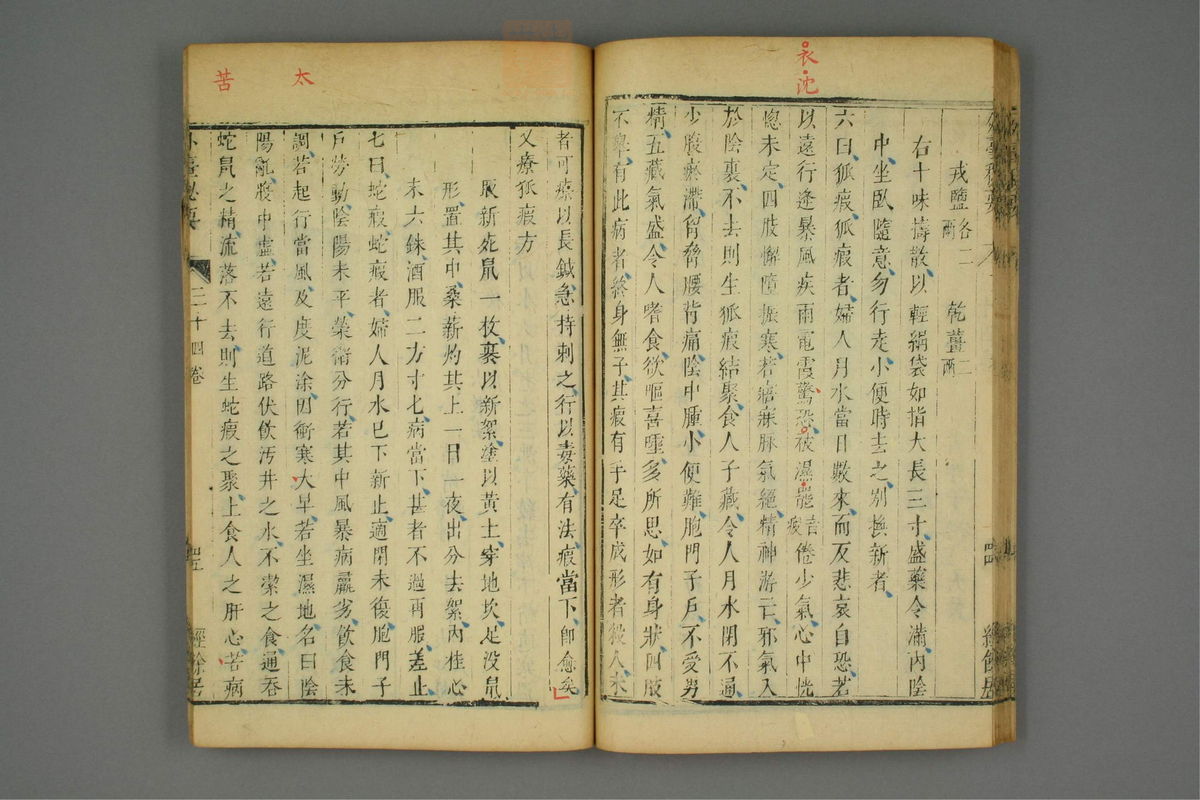 衣沈
戎鹽各二兩　乾薑二兩
右十味擣散以輕絹袋如指大長三寸盛藥令滿內陰
中坐臥隨意勿行走小便時去之別換新者
六曰狐瘕狐瘕者婦人月水當日數來而反悲哀自恐若
以遠行逢暴風疾雨電霞驚恐被濕罷音疲倦少氣心中恍
惚未定四肢懈墮振寒若寤寐脉氣絕精神游亡邪氣入
於陰裏不去則生狐瘕結聚食人子藏令人月水閉不通
少腹瘀滯胷脅腰背痛陰中腫小便難胞門子戶不受男
精五藏氣盛令人嗜食欲嘔喜唾多所思如有身狀四肢
不舉有此病者終身無子其瘕有手足卒成形者殺人未
者可療以長鍼急持刺之行以毒藥有法瘕當下卽愈矣
又療狐瘕方
取新死鼠一枚裹以新絮塗以黃土穿地坎足没鼠
形置其中桑薪灼其上一日一夜出分去絮內桂心
末六銖酒服二方寸匕病當下甚者不過再服差止
七曰蛇瘕蛇瘕者婦人月水已下新止適閉未復胞門子
戶勞動陰陽未平榮衛分行若其中風暴病羸劣飲食未
調若起行當風及度泥涂因衝寒大旱若坐濕地名曰陰
陽亂腹中虛若遠行道路伏飲污井之水不潔之食通吞
蛇鼠之精流落不去則生蛇瘕之聚上食人之肝心苦病
外臺秘要
三十四卷
經餘居
太
苦